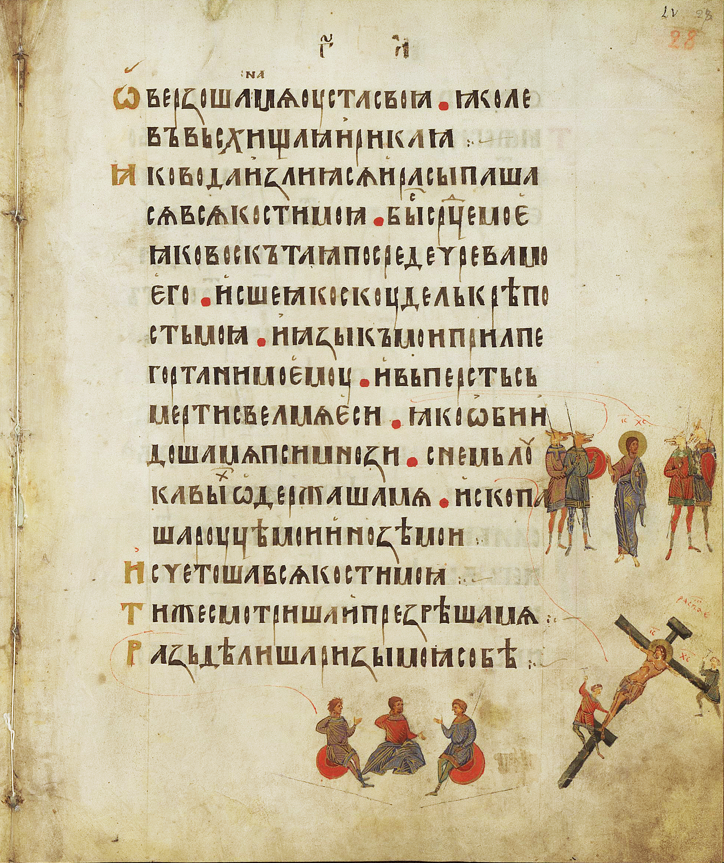 LV 28
28
Ѿверзоша на мѧ оуста своꙗ • ꙗко ле
въ въсхищаꙗ и рикаꙗ
ꙗко вода излиꙗсѧ и расыпаша
сѧ всѧ кости моꙗ • быⷭ срⷣце мое
ꙗко воскъ таꙗ посреде чрева мо
его • исше ꙗко скоудель крѣпо
сть моꙗ • и ꙗзыкъ мои прилпе
гортани моемоу • и въ персть съ
мерти свелмѧ еси • ꙗко ѡбии
доша мѧ пси мнози • снемь ло
кавыⷯ ѡдержаша мѧ • ископа
ша роуцѣ мои и нозѣ мои
исчетоша всѧ кости моꙗ
ти же смотриша и презрѣша мѧ
Разьдѣлиша ризы моꙗ собѣ
ІС ХС
ІС ХС